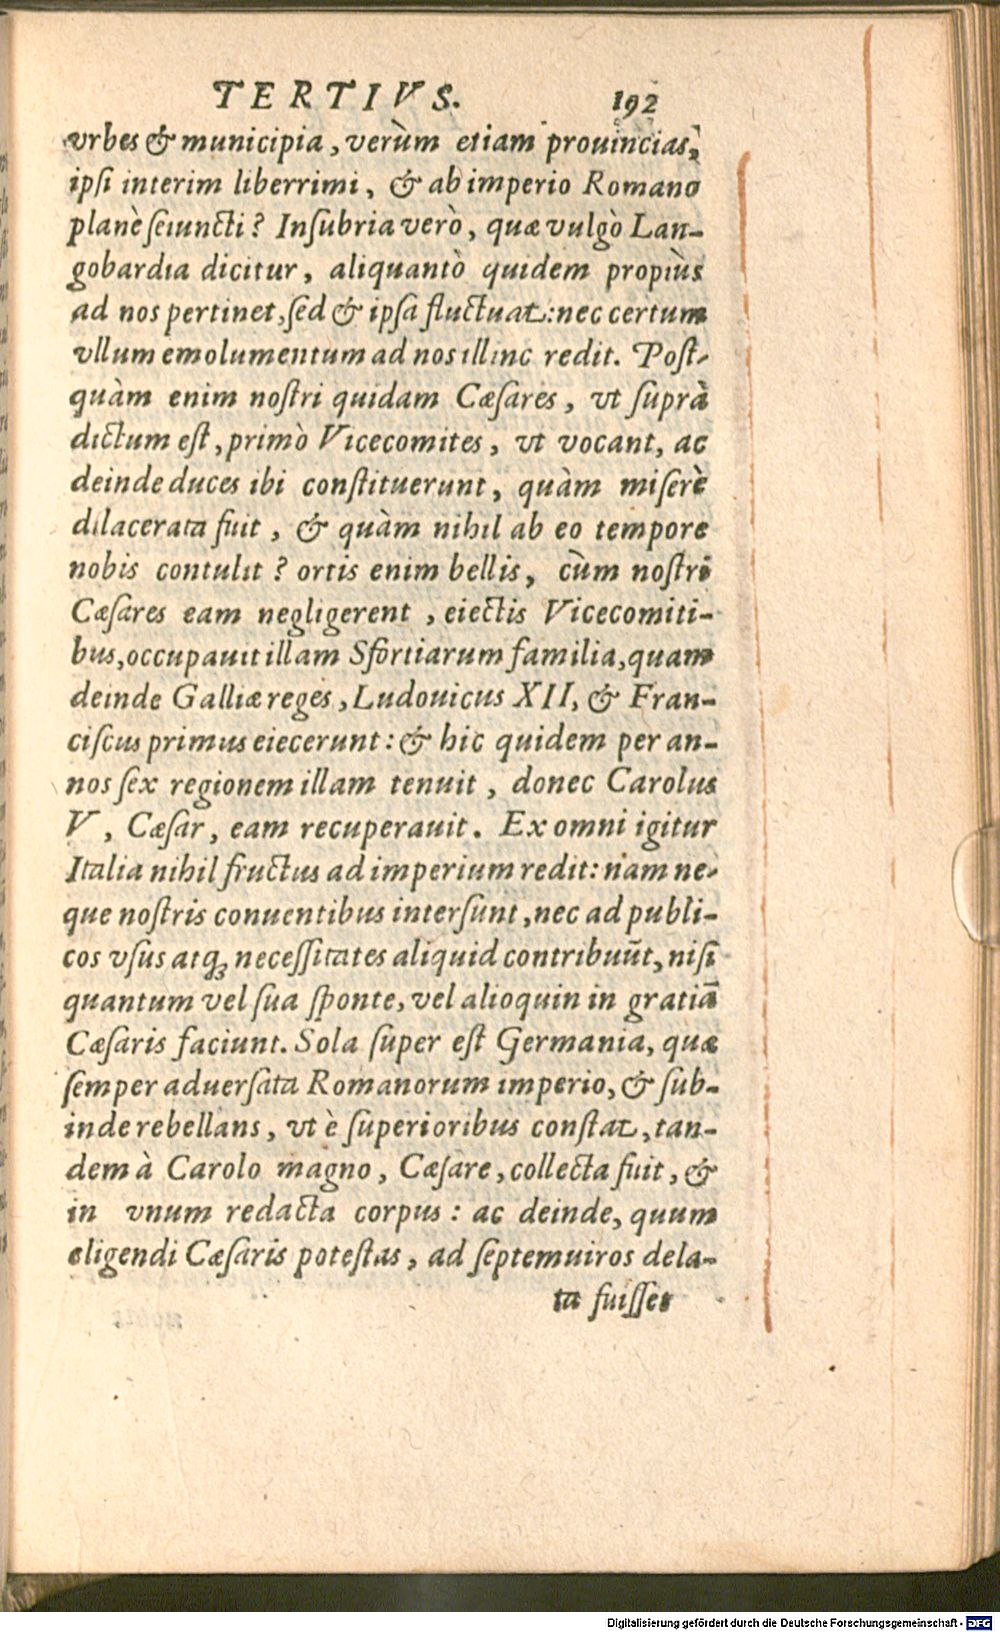 TERTIVS. 192
vrbes & municipia, verùm etiam prouincias,
ipsi interim liberrimi, & ab imperio Romano
planè seiuncti? Insubria verò, quæ vulgò Lan-
gobardia dicitur, aliquantò quidem propiùs
ad nos pertinet, sed & ipsa fluctuat: nec certum
vllum emolumentum ad nos illinc redit. Post-
quàm enim nostri quidam Cæsares, vt suprà
dictum est, primò Vicecomites, vt vocant, ac
deinde duces ibi constituerunt, quàm miserè
dilacerata fuit, & quàm nihil ab eo tempore
nobis contulit? ortis enim bellis, cùm nostri
Cæsares eam negligerent, eiectis Vicecomiti-
bus, occupauit illam Sfortiarum familia, quam
deinde Galliæ reges, Ludouicus XII, & Fran-
ciscus primus eiecerunt: & hic quidem per an-
nos sex regionem illam tenuit, donec Carolus
V, Cæsar, eam recuperauit. Ex omni igitur
Italia nihil fructus ad imperium redit: nam ne-
que nostris conuentibus intersunt, nec ad publi-
cos vsus atq; necessitates aliquid contribuūt, nisi
quantum vel sua sponte, vel alioquin in gratiā
Cæsaris faciunt. Sola super est Germania, quæ
semper aduersata Romanorum imperio, & sub-
inde rebellans, vt è superioribus constat, tan-
dem à Carolo magno, Cæsare, collecta fuit, &
in vnum redacta corpus: ac deinde, quum
eligendi Cæsaris potestas, ad septemuiros dela-
ta fuisset
Digitalisierung gefördert durch die Deutsche Forschungsgemeinschaft - DFG